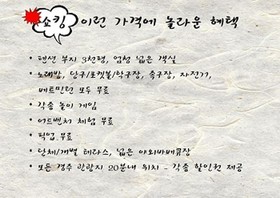 쇼킹 이런 가격에 놀라운 혜택
• 펜션 부지 3천평, 엄청 넓은 객실
• 노래방, 당구/포켓볼/탁구장, 족구장, 자전거,
베드민턴 모두 무료
• 각종 놀이 게임
• 어드벤처 체험 무료
• 픽업 무료
• 단체/개별 테라스, 넓은 야외바베큐장
• 모든 경주 관광지 20분내 위치 - 각종 할인권 제공